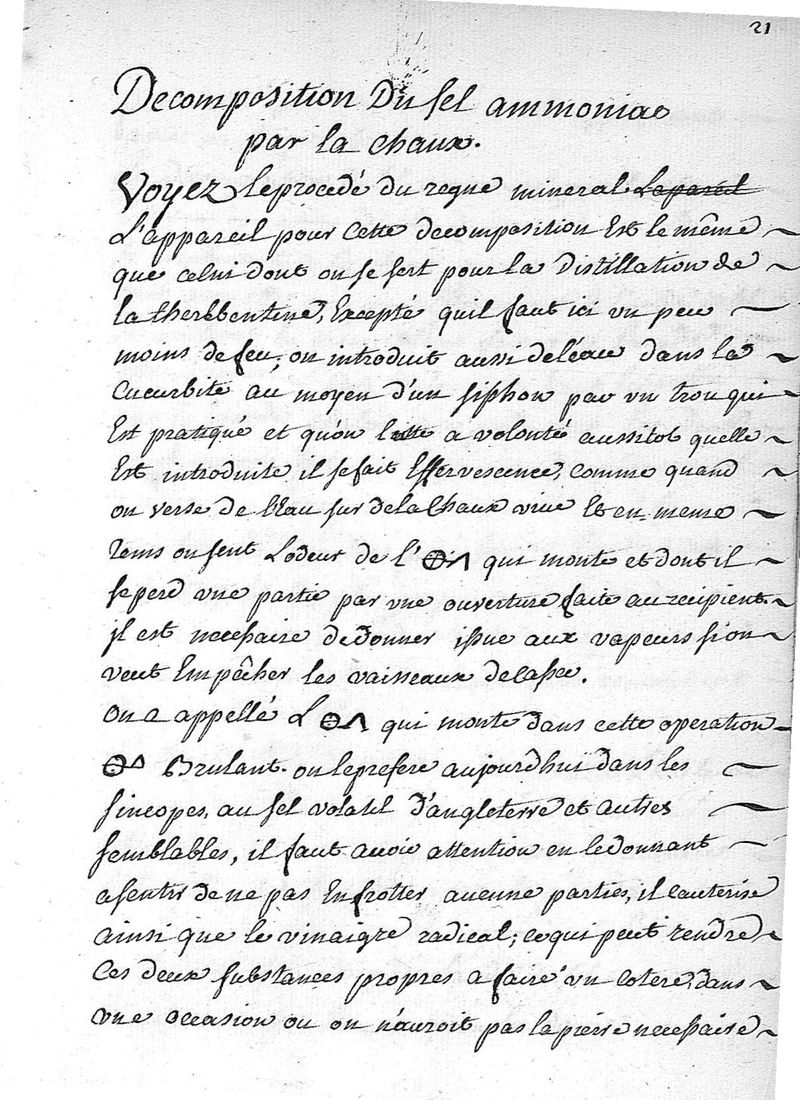 21
Decomposition Du sel ammoniac
par la chaux.
Voyez le procedé du regne mineral Lapareil
L'appareil pour Cette decomposition Est le même
que celui dont on se sert pour la Distillation de
la therebbentine, Excepté quil faut ici un peu
moins de feu, on introduit aussi de léau dans la
Cucurbite au moyen d'un siphon par un trou qui
Est pratiqué et qu'on lutte a volonté aussitot quelle
Est introduite il se fait Effervescence, comme quand
on verse de l'Eau sur de la Chaux vive Et en meme
Tems on sent Lodeur de l' qui monte et dont il
se perd une partie par une ouverture faite au recipient.
il est necessaire de donner issue aux vapeurs si on
veut Empâcher les vaisseaux de casser.
On a appellé L qui monte dans cette operation
Brulant. on le prefere aujourdhui dans les
sincopes, au sel volatil d'angleterre et autres
semblables, il faut avoir attention en le donnant
a sentir de ne pas En frotter aucune parties, il cauterise
ainsi que le vinaigre radical; ce qui peut rendre
Ces deux substances propres a faire un cotere, dans
une occasion ou on n'auroit pas la pierre necessaire